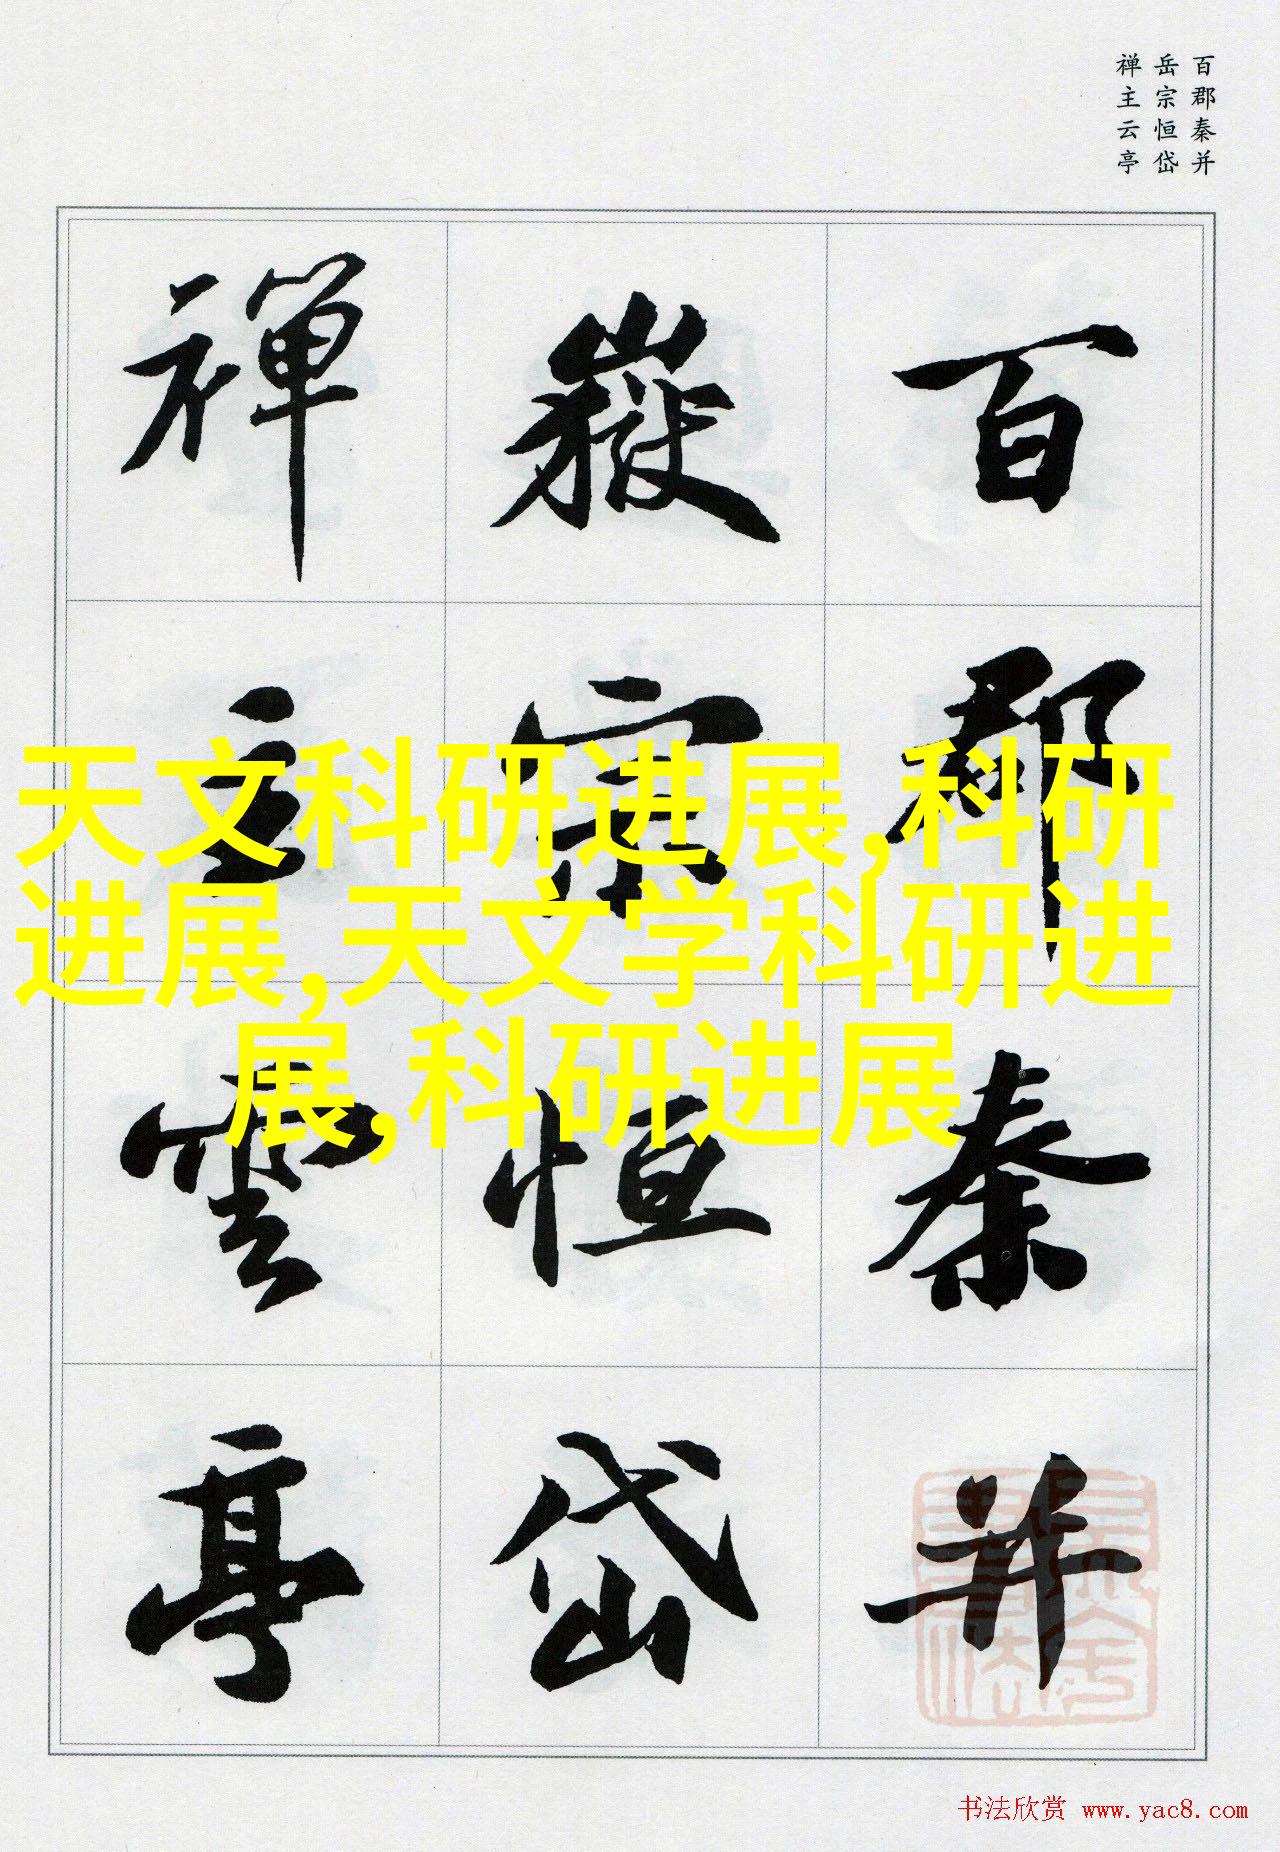 百郡秦并
岳宗恒岱
禅主云亭
百郡秦并
嶽宗恒岱
禅主雲亭
天文科研进展,科研
进展,天文学科研进
展,科研进展
书法欣赏 www.yac8.com